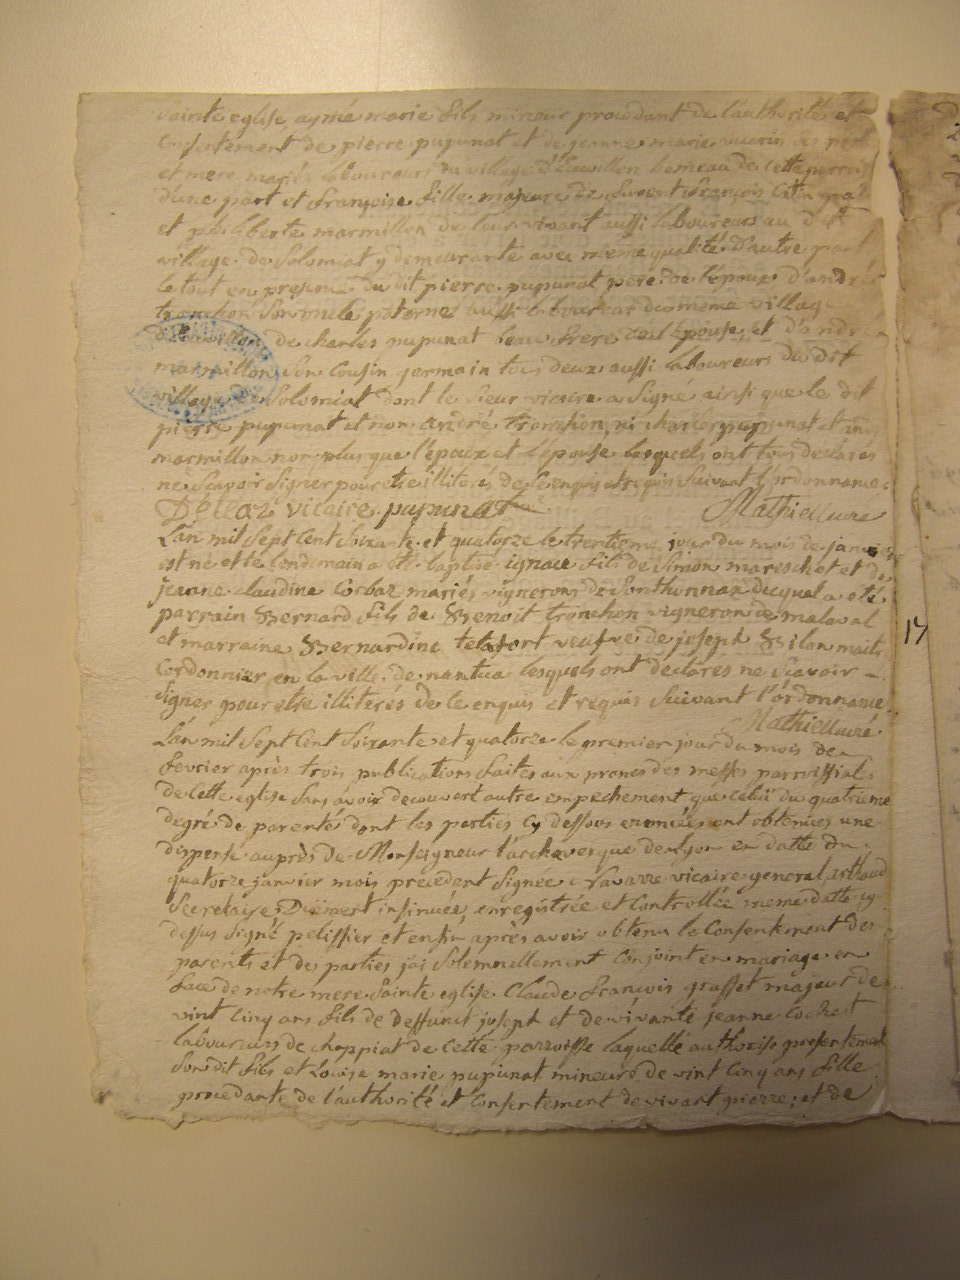 Sainte eglise aymé marie fils mineur procedant de l'authorité et
consentement de pierre pupunat et de jeanne marie des pere
et mere mariés laboureurs du village hameau de cette parroisse
d'une part et françoise fille majeure de françois
et philiberte marmillon de leur vivant aussi laboureurs au dit
village de Solomiat y demeurante avec meme qualité d'autre part
le tout en presence du dit pierre pupunat pere de l'epoux d'andré
tronchon son oncle paternel aussi laboureur du meme village
de charles pupunat beau frere de l'epouse et d'andré
marmillon son cousin germain tous deux aussi laboureurs du dit
village de Solomiat dont le Sieur vicaire a signé ainsi que le dit
pierre pupunat et non andré tronchon, ni charles pupunat et andré
marmillon non plus que l'epoux et l'epouse lesquels ont tous declarés
ne scavoir signer pour etre illiterés de ce enquis et requis suivant l'ordonnance
Déléaz vicaire pupunat Mathieu curé
L'an mil sept cent soixante et quatorze le trentieme jour du mois de janvier
est né et le lendemain a été baptisé ignace fils de Simon mareschet et de
jeanne claudine mariés vignerons de Sonthonnax duquel a été
parrain Bernard fils de Benoit tronchon vigneron de malaval
et marraine Bernardine veufve de joseph maitre
cordonnier en la ville de nantua lesquels ont declarés ne scavoir
signer pour etre illiterés de ce enquis et requis suivant l'ordonnance
Mathieu curé
L'an mil sept cent soixante et quatorze le premier jour du mois de
fevrier après trois publications faites aux prones des messes parroissiales
de cette eglise sans avoir decouvert autre empechement que celui du quatrieme
degré de parenté dont les parties cy dessous enoncées ont obtenues une
dispense auprès de Monseigneur l'archeveque de Lyon en datte du
quatorze janvier mois precedent signée Navarre vicaire general, arthaud
Secretaire, Duëment insinuée, enregistrée et controllée meme datte cy
dessus signé pelissier et enfin après avoir obtenu le consentement des
parents et des parties j'ai solemnellement conjoint en mariage en
face de notre mere Sainte eglise Claude françois grasset majeur de
vint cinq ans fils de deffunct joseph et de vivante jeanne cochet
laboureurs de choppiat de cette parroisse laquelle authorise presentement
son dit fils et Louise marie pupunat mineure de vint cinq ans fille
procedante de l'authorité et consentement de vivant pierre, et de
17